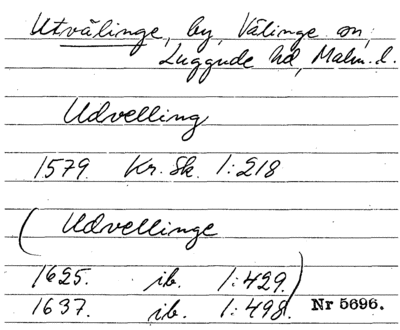 Utvälinge, by, Välinge sn,
Luggude hd, Malm. l.
Udvelling
1579. Kr. Sk. 1:218
(Udvellinge
1625. ib. 1:429.
1637. ib. 1:498.) Nr 5696.